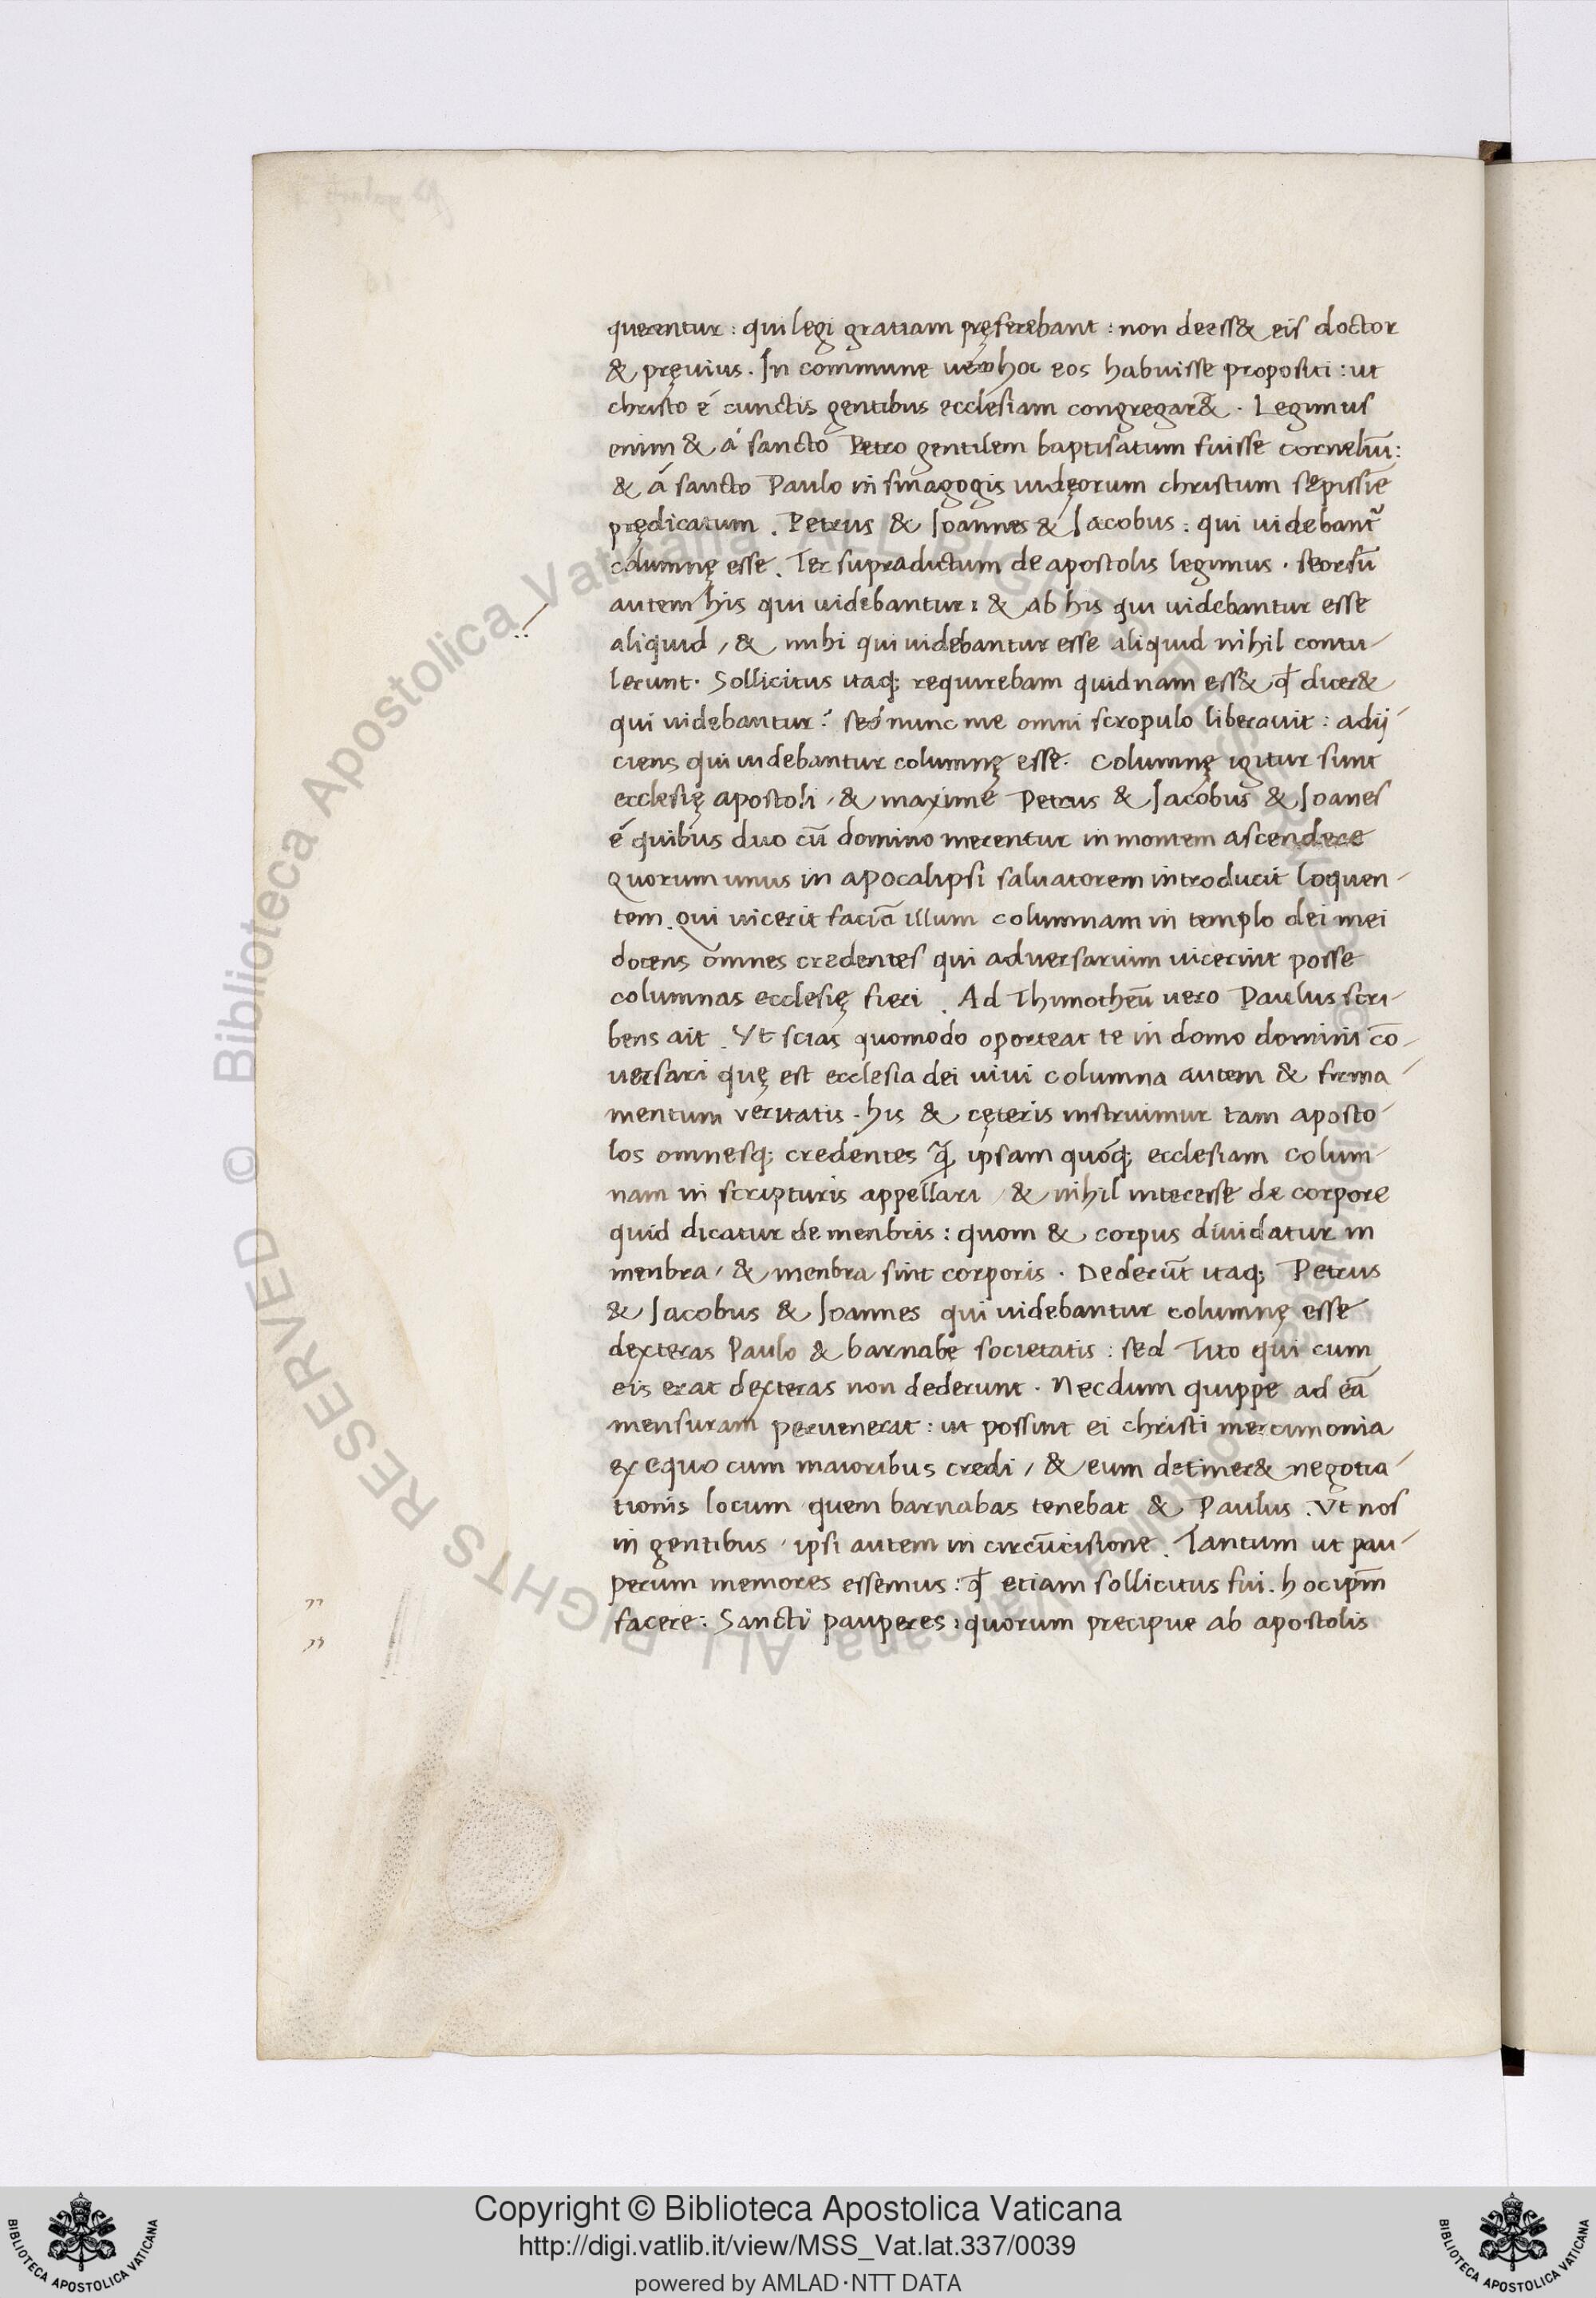 querentur : qui legi gratiam pręferebant : non deess& eis doctor
& pręuius . In commune uero hoc eos habuisse propositi : ut
christo é cunctis gentibus ecclesiam congregar& . Legimus
enim & á sancto Petro gentilem baptisatum fuisse corneliū :
& á sancto Paulo in sinagogis iudęorum christum sępissie
prędicatum . Petrus & Joannes & Jacobus : qui uidebant᷑
columnę esse . Ter supradictum de apostolis legimus . seorsū
autem his qui uidebantur : & ab his qui uidebantur esse
aliquid , & mihi qui uidebantur esse aliquid nihil contu-
lerunt . Sollicitus itaq; requirebam quidnam ess& qđ dicer&
qui uidebantur ? sed nunc me omni scropulo liberauit : adij-
ciens qui uidebantur columnę esse . Columnę igitur sunt
ecclesię apostoli , & maxime Petrus & Jacobus & Joanes
é quibus duo cū domino merentur in montem ascendere
Quorum unus in apocalipsi saluatorem introducit loquen-
tem . Qui uicerit faciā illum columnam in templo dei mei
docens omnes credentes qui aduersarium uicerint posse
columnas ecclesię fieri . Ad Thimotheū uero Paulus scri-
bens ait . Vt scias quomodo oporteat te in domo domini cō-
uersari quę est ecclesia dei uiui columna autem & firma-
mentum veritatis . his & cęteris instruimur tam aposto-
los omnesq; credentes ꝗ̃ ipsam quoq; ecclesiam colum-
nam in scripturis appellari , & nihil interesse de corpore
quid dicatur de menbris : quom & corpus diuidatur in
menbra , & menbra sint corporis . Dederūt itaq; Petrus
& Jacobus & Joannes qui uidebantur columnę esse
dexteras Paulo & barnabę societatis : sed Tito qui cum
eis erat dexteras non dederunt . Necdum quippe ad eā
mensuram peruenerat : ut possint ei christi mercimonia
ex equo cum maioribus credi , & eum detiner& negotia-
tionis locum quem barnabas tenebat & Paulus . Vt nos
in gentibus , ipsi autem in circūcisione . Tantum ut pau-
perum memores essemus : qđ etiam sollicitus fui . hoc ipm̄
facere : Sancti pauperes : quorum precipue ab apostolis
© Biblioteca Apostolica Vaticana ALL RIGHTS RESERVED
Copyright © Biblioteca Apostolica Vaticana
http://digi.vatlib.it/view/MSS_Vat.lat.337/0039
powered by AMLAD·NTT DATA
BIBLIOTECA APOSTOLICA VATICANA
BIBLIOTECA APOSTOLICA VATICANA